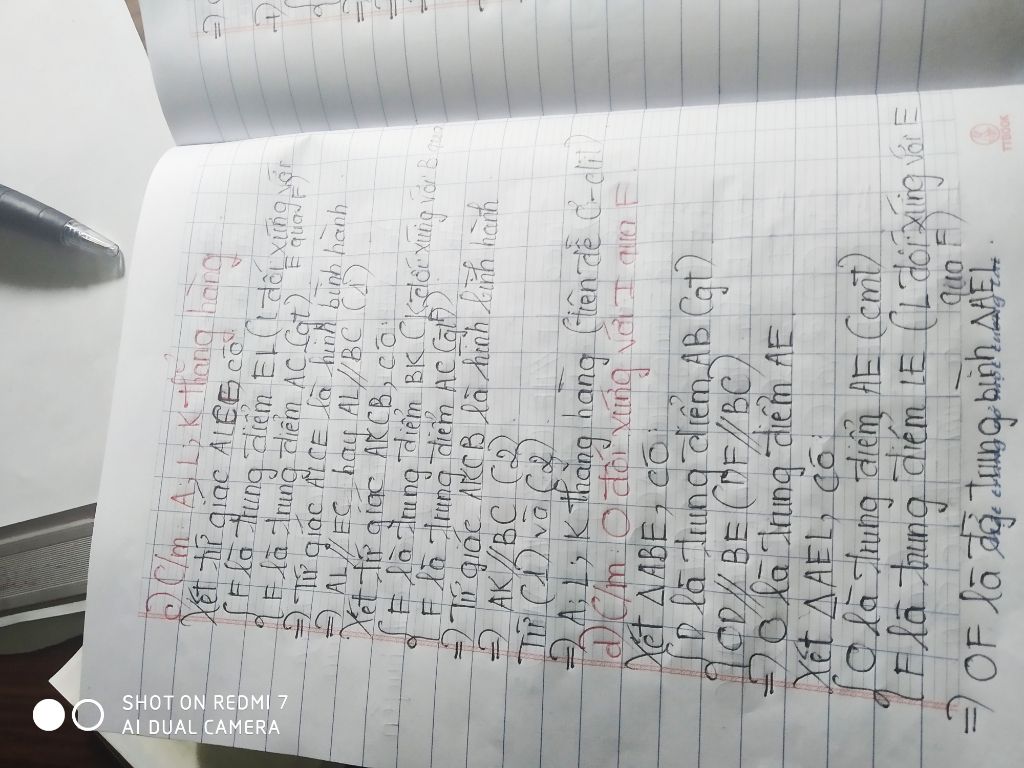 c) C/m A, L, K thẳng hàng
Xét tứ giác ALCE có
F là trung điểm EL (L đối xứng với
E qua F)
F là trung điểm AC (gt)
=) Tứ giác ALCE là hình bình hành
=) AL // EC hay AL // BC (1)
Xét tứ giác AKCB, có:
F là trung điểm BK (K đối xứng với B qua
F)
F là trung điểm AC (gt)
=) Tứ giác AKCB là hình bình hành
=) AK // BC (2)
Từ (1) và (2)
=) A, L, K thẳng hàng (tiên đề Ơ-clit)
d) C/m O đối xứng với I qua F
Xét ΔABE, có:
D là trung điểm AB (gt)
OD // BE (DF // BC)
=) O là trung điểm AE
Xét ΔAEL, có
O là trung điểm AE (cmt)
F là trung điểm LE (L đối xứng với E
qua F)
=) OF là đg tung bình ΔAEL.
TTBOOK
SHOT ON REDMI 7
AI DUAL CAMERA